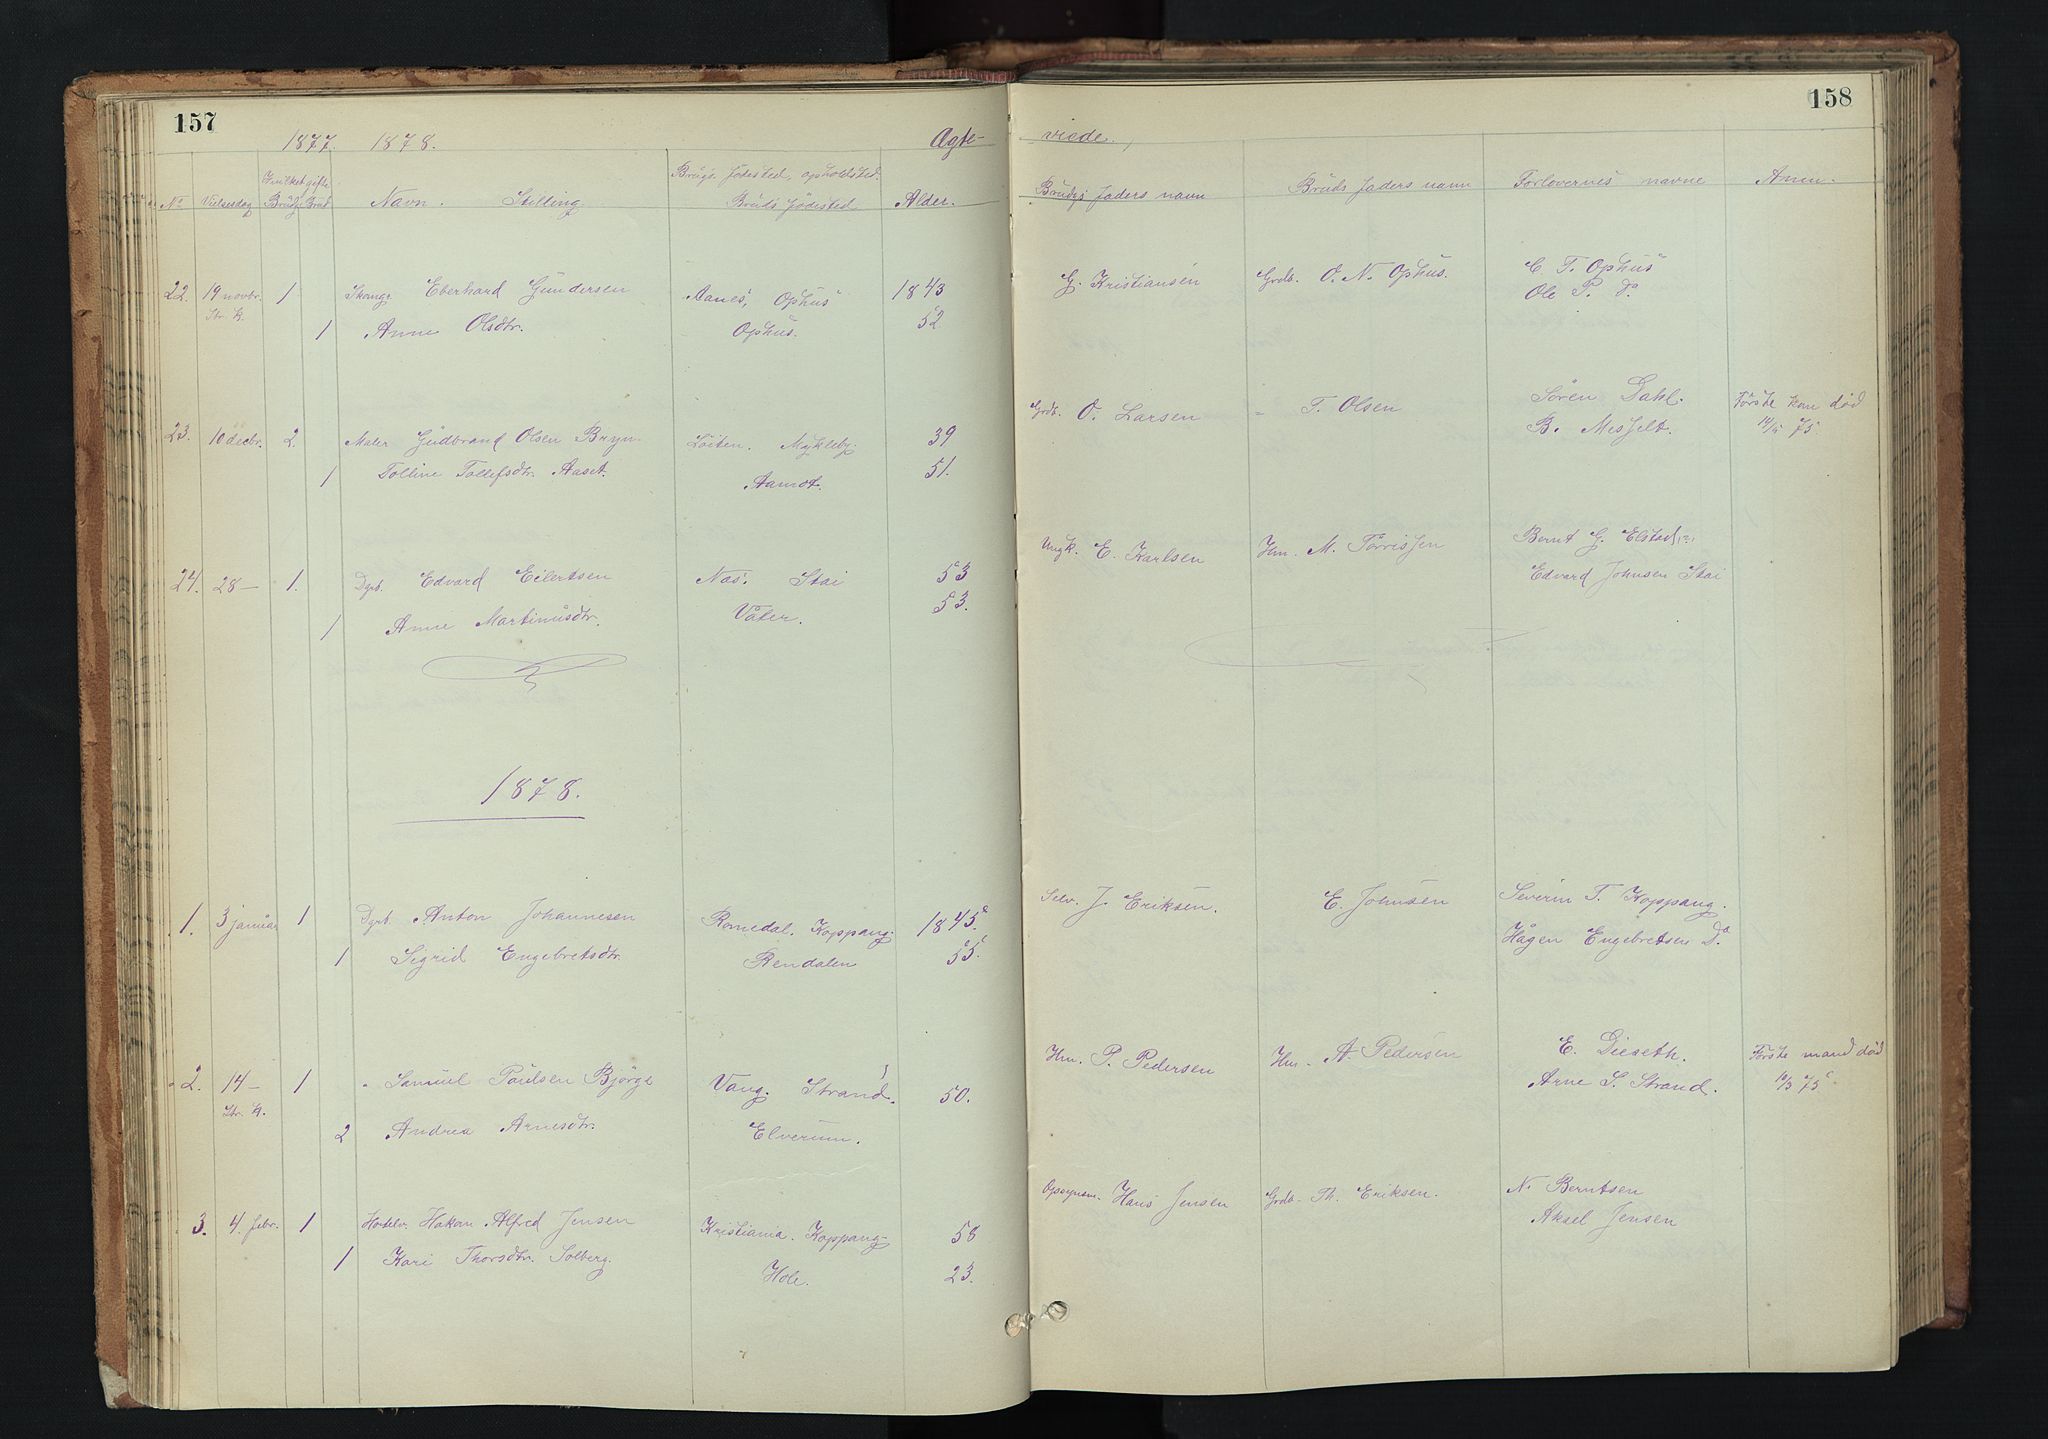 157
1877. 1878. Ægte-
No Vielsesdag Hvilket gifte Brudg. Brud Navn. Stilling Brudgs. fødested, opholdsted. Bruds fødested Alder.
22. 19 novbr. 1 Eberhard Gundersen Aanes, Ophus 1843
Str. k. 1 Anne Olsdtr. Ophus. 52
23. 10 decbr. 2. Maler Gudbrand Olsen Bryn Løiten. Mykleby. 39
1 Tolline Tollefsdtr. Aaset. Aamot. 51.
24. 28 — 1. Dgrb. Edvard Eilertsen Næs. Stai 53
1 Anne Martinusdtr. Våler. 53.
1878.
1. 3 januar 1 Dgrb. Anton Johannesen Romedal. Koppang. 1845.
1 Sigrid Engebretsdtr. Rendalen 55.
2. 14 — 1 " Samuel Paulsen Bjørge Vang. Strand. 50.
Str. k. 2 Andrea Arnesdtr. Elverum.
3. 4. febr. 1 Hakon Alfred Jensen Kristiania. Koppang- 58
1 Kari Thorsdtr. Solberg. Hole. 23.
158
viede.
Brudgs faders navn Bruds faders navn Forlovernes navne Anm.
G. Kristiansen Grdb. O. N. Ophus. C. T. Ophus
Ole P. do.
Grdb. O. Larsen " T. Olsen Søren Dahl. Første kone død
B. Messelt. 14/5 75.
Ungk. E. Karlsen Hm. M. Tørrissen Bernt G. Elstad
Edvard Johnsen Stai
Selv. J. Eriksen. E. Johnsen Severin T. Koppang.
Hågen Engebretsen Do.
Hm. P. Pedersen Hm. A. Pedersen E. Dieseth. Første mand død
Arne S. Strand. 10/3 75
Opsynsm. Hans Jensen Grdb. Th. Eriksen. N. Berntsen
Aksel Jensen